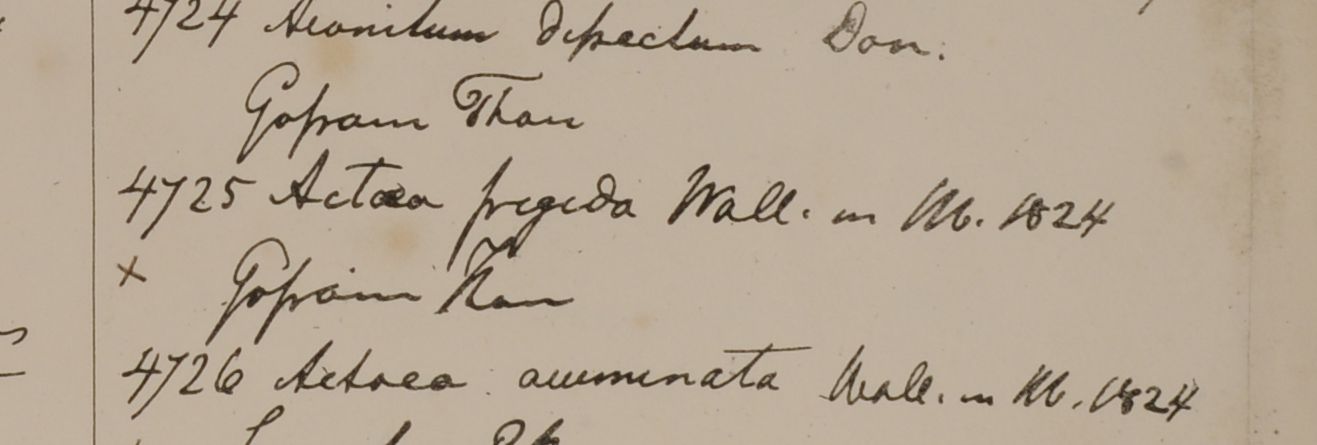 4724 Aconitum dissectum Don.
Gossain Than
4725 Actaea frigida Wall. in M. 1824
x Gossain Than
4726 Actaea acuminata Wall. in M. 1824